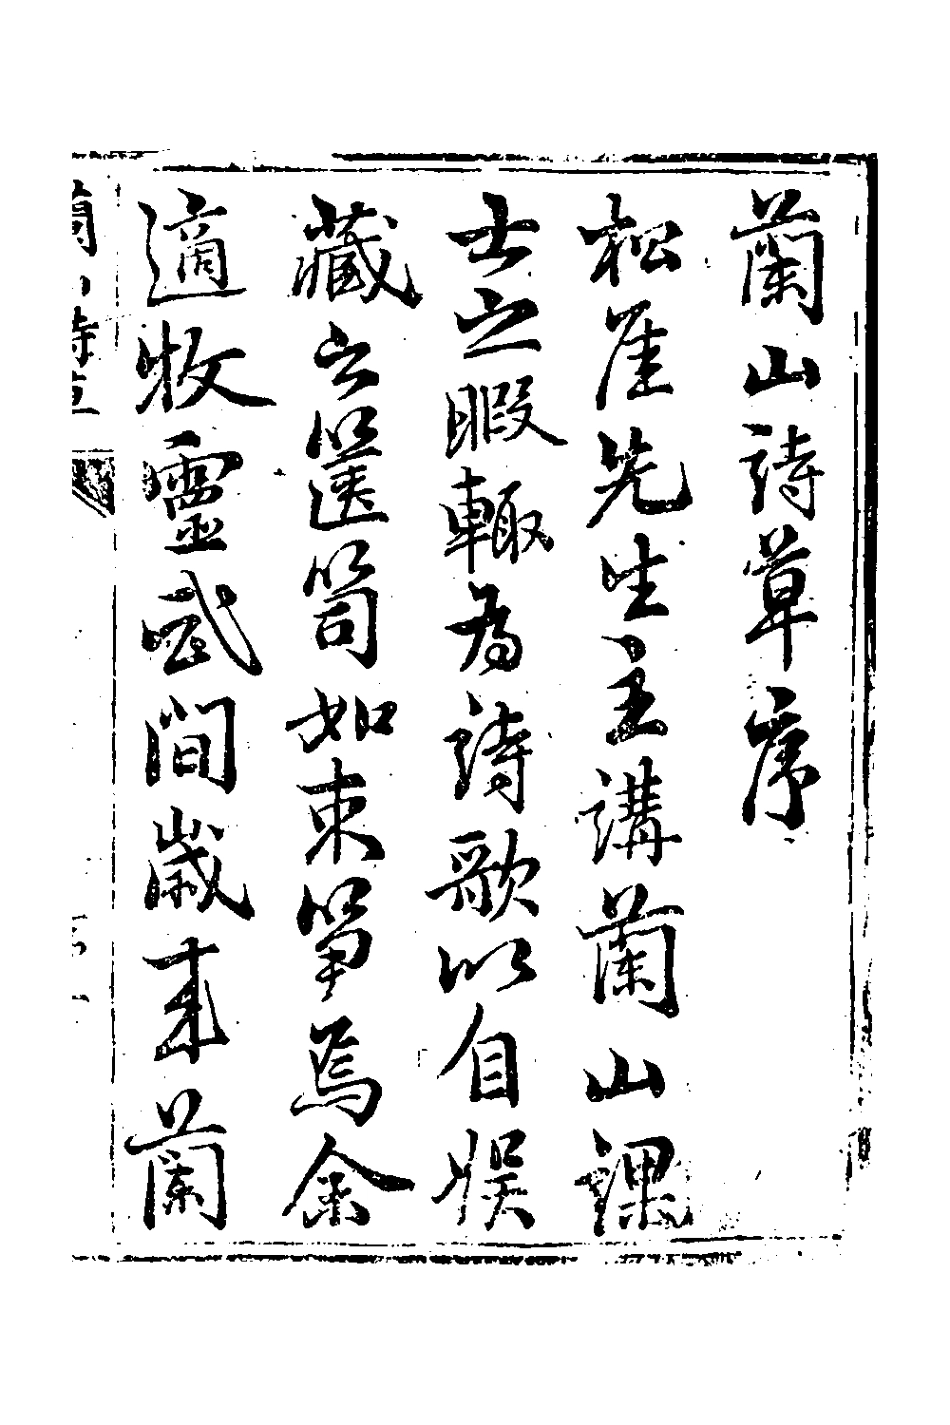 蘭山詩草序
松崖先生主講蘭山課
士之暇輙為詩歌以自娛
藏之篋笥如束筍焉余
適牧靈武間歲来蘭